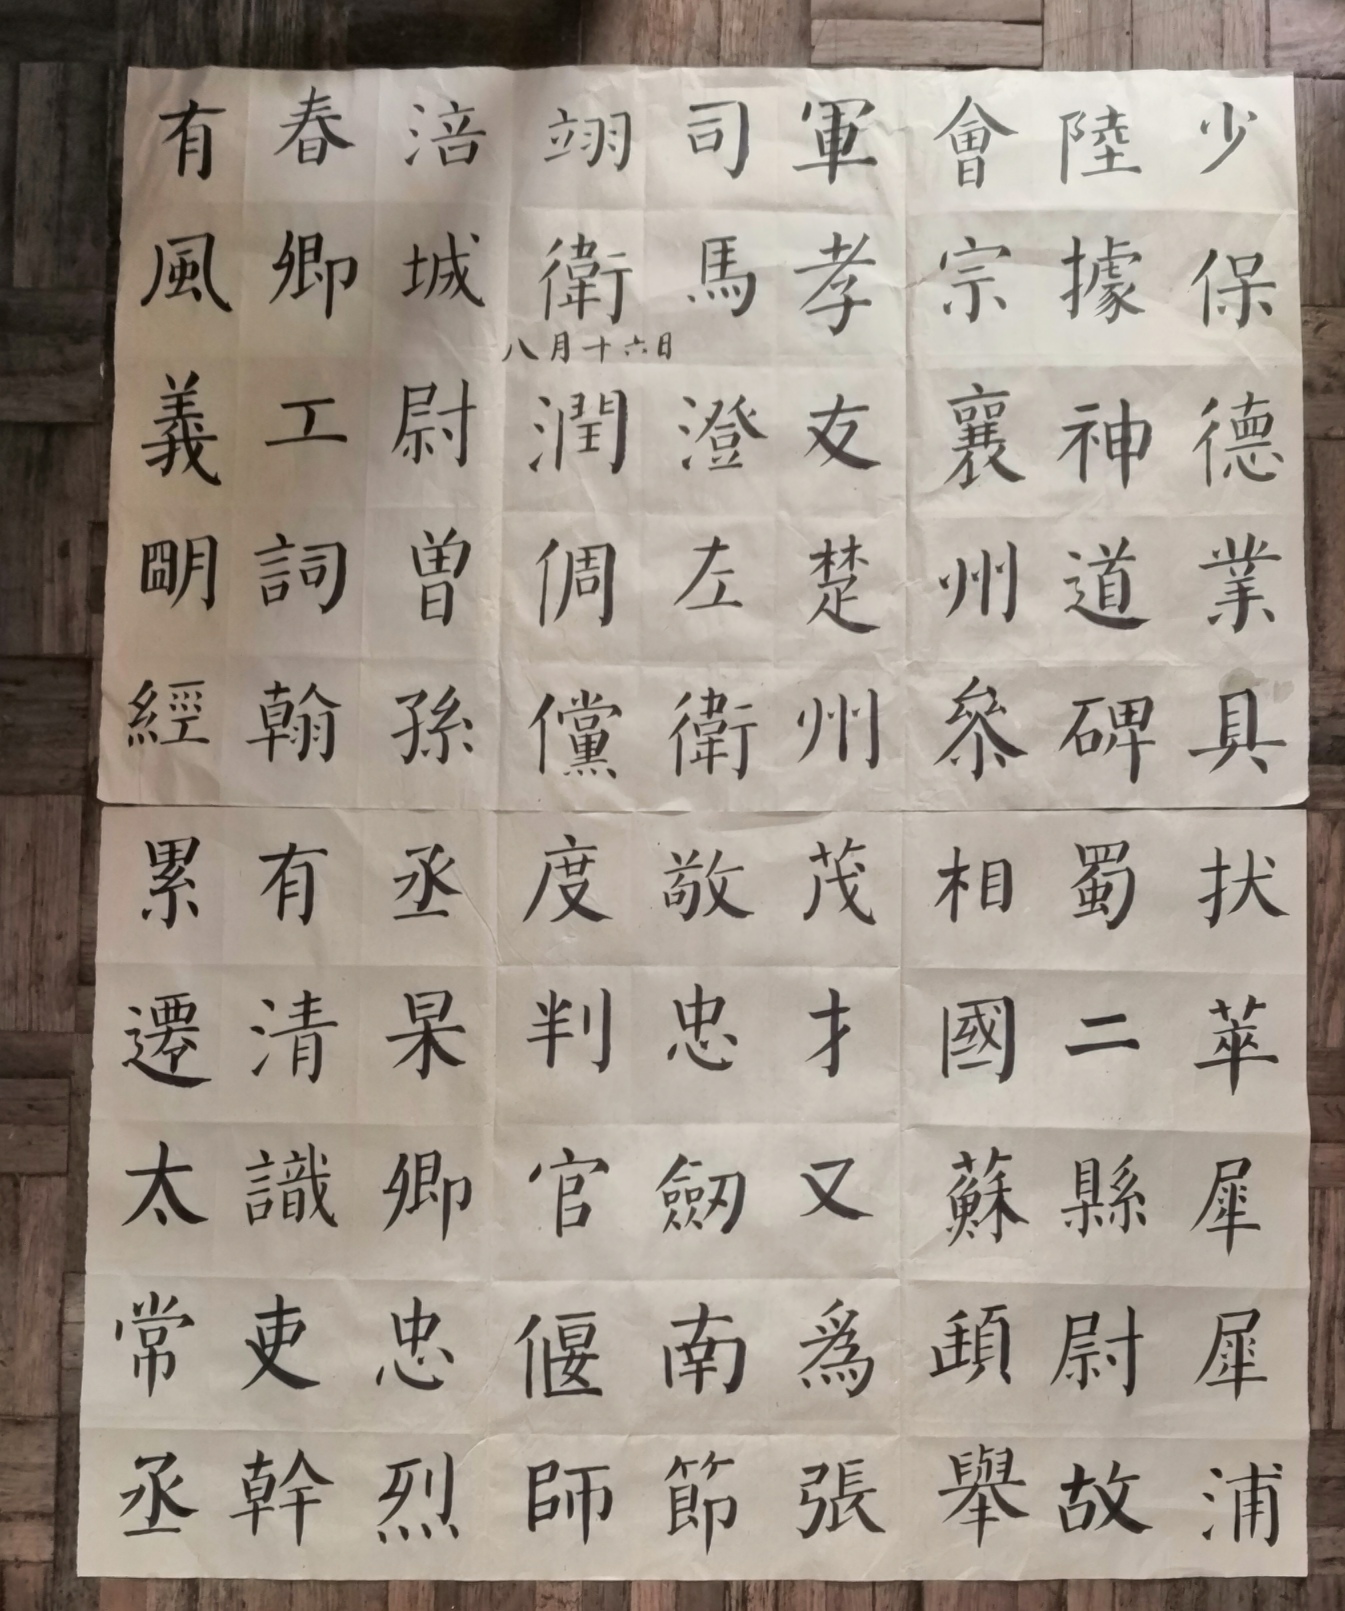 少保德業具
陸據神道碑
會宗襄州參
軍孝友楚州
司馬澄左衛
翊衛潤倜儻
涪城尉曾孫
春卿工詞翰
有風義朙經
八月十六日
拔萃犀犀浦
蜀二縣尉故
相國蘇頲舉
茂才又爲張
敬忠劒南節
度判官偃師
丞杲卿忠烈
有清識吏幹
累遷太常丞